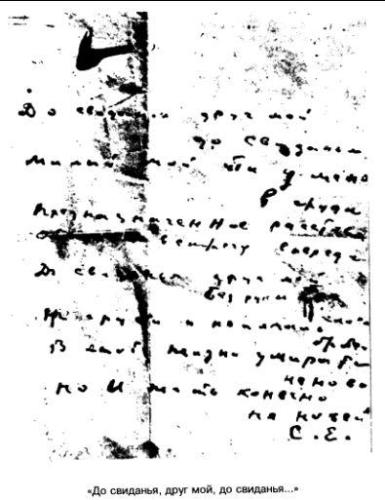 До свиданья, друг мой,
до свиданья
Милый мой, ты у меня
в груди
Предназначенное расставанье
встречу впереди
До свиданья друг мой
без руки
и
В этой жизни умирать
не ново
но и жить конечно
не новей
С. Е.
«До свиданья, друг мой, до свиданья...»